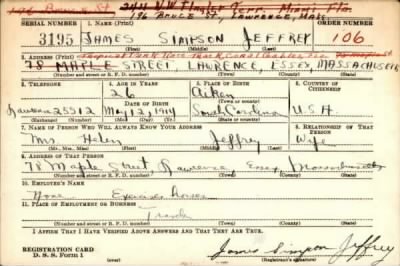 196 Bruce St. 244 N.W. Flagler Terr. Miami Fla.
96 BRUCE ST., LAWRENCE, MASS
SERIAL NUMBER 1. NAME (Print) ORDER NUMBER
3195 JAMES SIMPSON JEFFREY 106
(First) (Middle) (Last)
2. ADDRESS (Print) Tropical Park Race Track Coral Gables Fla.
78 MAPLE STREET, LAWRENCE, ESSEX, MASSACHUSETTS
(Number and street or R. F. D. number) (Town) (County) (State)
3. TELEPHONE 4. AGE IN YEARS 5. PLACE OF BIRTH 6. COUNTRY OF CITIZENSHIP
26 Aiken
DATE OF BIRTH (Town or county)
Lawrence 25512 May 12, 1914 South Carolina U.S.A.
(Exchange) (Number) (Mo.) (Day) (Yr.) (State or country)
7. NAME OF PERSON WHO WILL ALWAYS KNOW YOUR ADDRESS 8. RELATIONSHIP OF THAT PERSON
Mrs. Helen Jeffrey Wife
(Mr., Mrs., Miss) (First) (Middle) (Last)
9. ADDRESS OF THAT PERSON
78 Maple Street Lawrence Essex Massachusetts
(Number and street or R. F. D. number) (Town) (County) (State)
10. EMPLOYER'S NAME
None Exercises horses
11. PLACE OF EMPLOYMENT OR BUSINESS
(Number and street or R. F. D. number) (Town) (County) (State)
I AFFIRM THAT I HAVE VERIFIED ABOVE ANSWERS AND THAT THEY ARE TRUE.
REGISTRATION CARD
D. S. S. Form 1
James Simpson Jeffrey
(Registrant's signature)